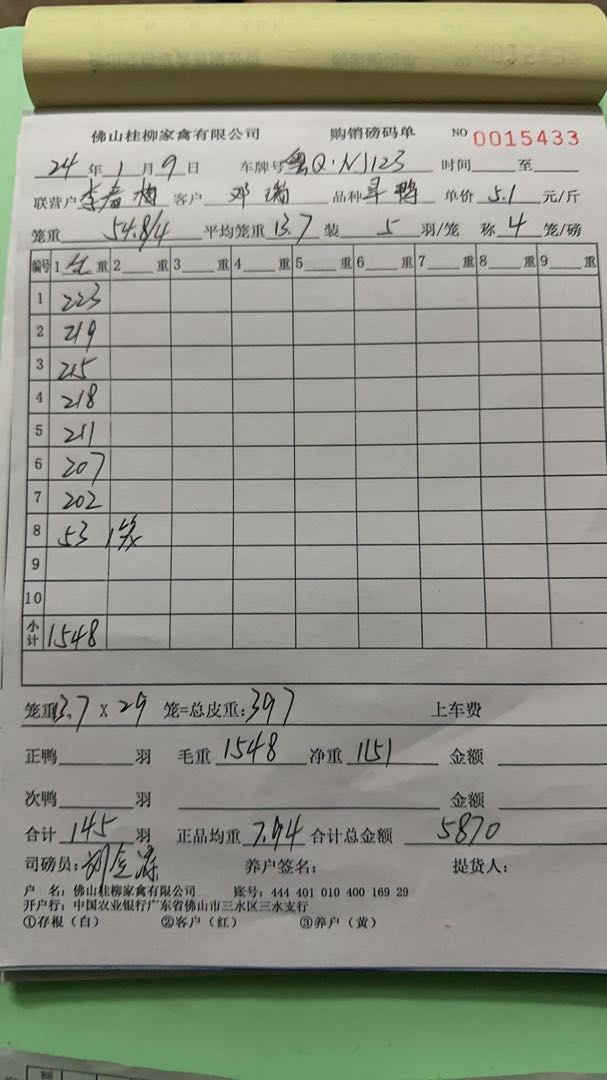 佛山桂柳家禽有限公司 购销磅码单 NO 0015433
24年1月9日 车牌号粤Q·NJ123 时间 至
联营户 李 梅 客户 邓 瑞 品种 鸭 单价 5.1 元/斤
笼重 54.8/4 平均笼重 13.7 装 5 羽/笼 称 4 笼/磅
编号 1 重 2 重 3 重 4 重 5 重 6 重 7 重 8 重 9 重
1 223
2 219
3 215
4 218
5 211
6 207
7 202
8 53 1
9
10
小计 1548
笼重13.7 X 29 笼=总皮重:397 上车费
正鸭 羽 毛重 1548 净重 1151 金额
次鸭 羽 金额
合计 145 羽 正品均重 7.94 合计总金额 5870
司磅员: 养户签名: 提货人:
户 名: 佛山桂柳家禽有限公司 账号: 444 401 010 400 169 29
开户行: 中国农业银行广东省佛山市三水区三水支行
①存根（白） ②客户（红） ③养户（黄）